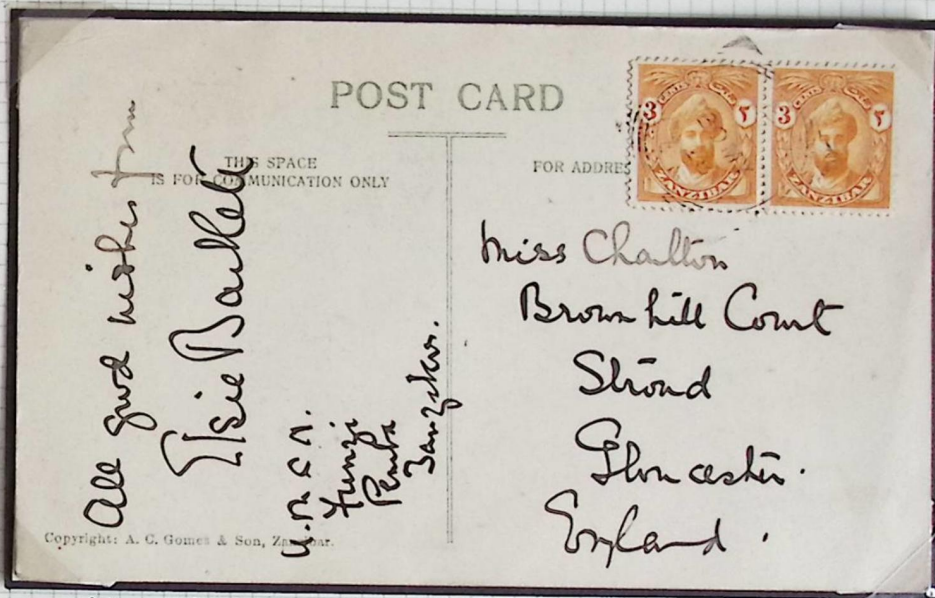 POST CARD
THIS SPACE
IS FOR COMMUNICATION ONLY
FOR ADDRES
3 CENTS ٣
ZANZIBAR
3 CENTS ٣
ZANZIBAR
All good wishes from
Elsie
U.M.C.A.
Pemba
Zanzibar.
Miss Charlton
Brownhill Court
Stroud
Gloucester.
England.
Copyright: A. C. Gomes & Son, Zanzibar.